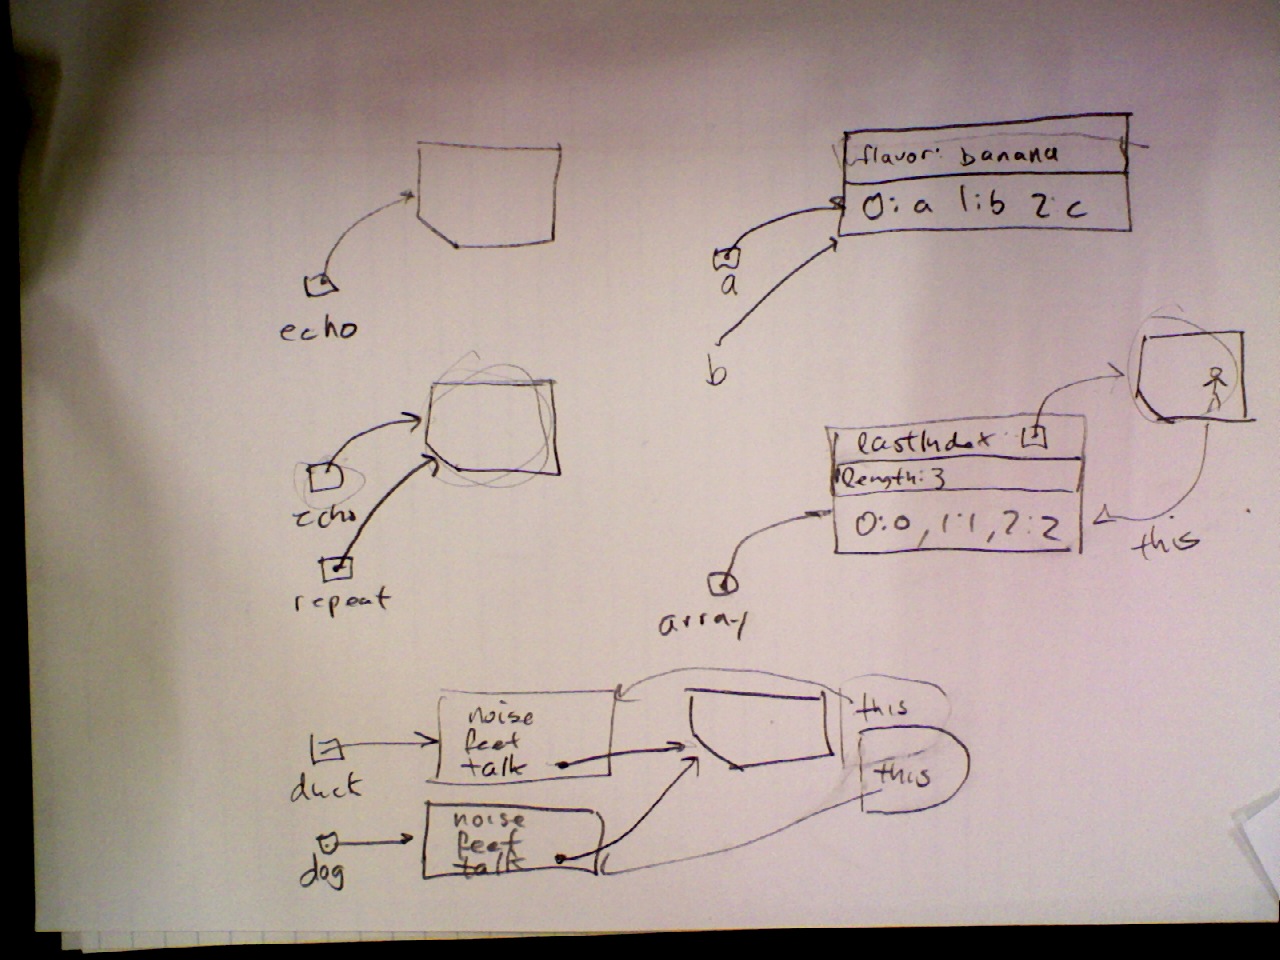 echo
flavor: banana
0: a 1: b 2: c
a
b
echo
repeat
lastIndex:
length: 3
0:0, 1:1, 2:2
array
this
duck
noise
feet
talk
this
dog
noise
feet
talk
this